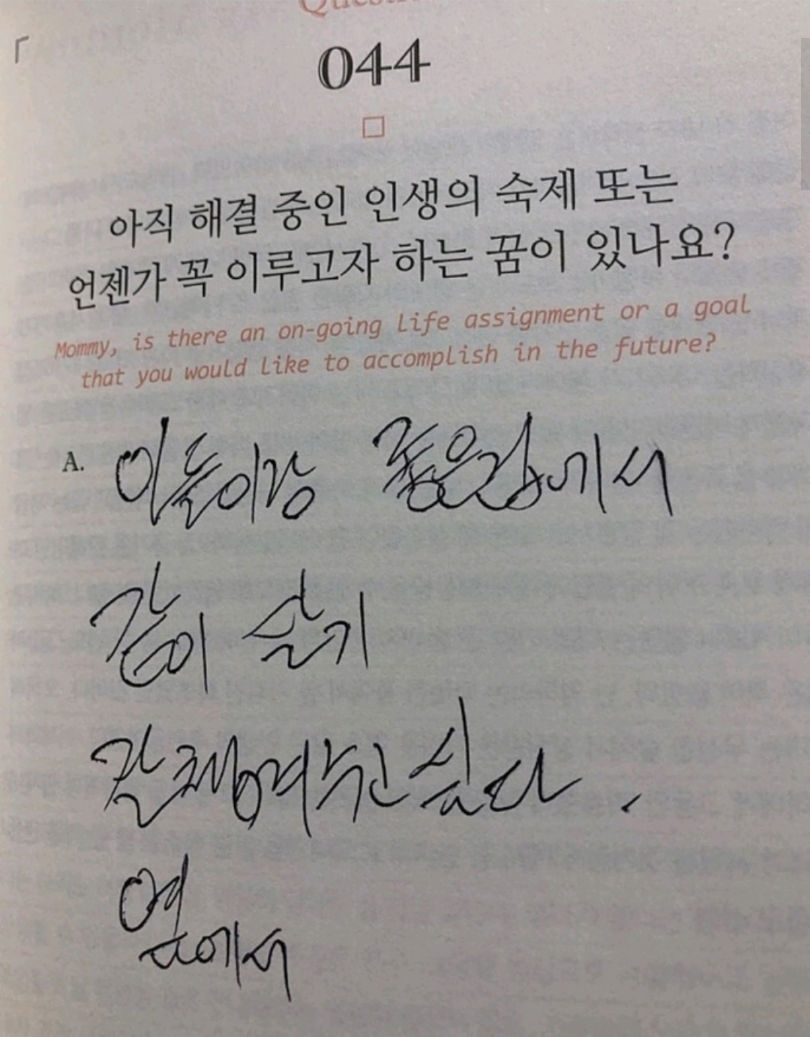 044
아직 해결 중인 인생의 숙제 또는
언젠가 꼭 이루고자 하는 꿈이 있나요?
Mommy, is there an on-going life assignment or a goal
that you would like to accomplish in the future?
A. 아들이랑 좋은집에서
같이 살기
잘 챙겨주고 싶다.
옆에서